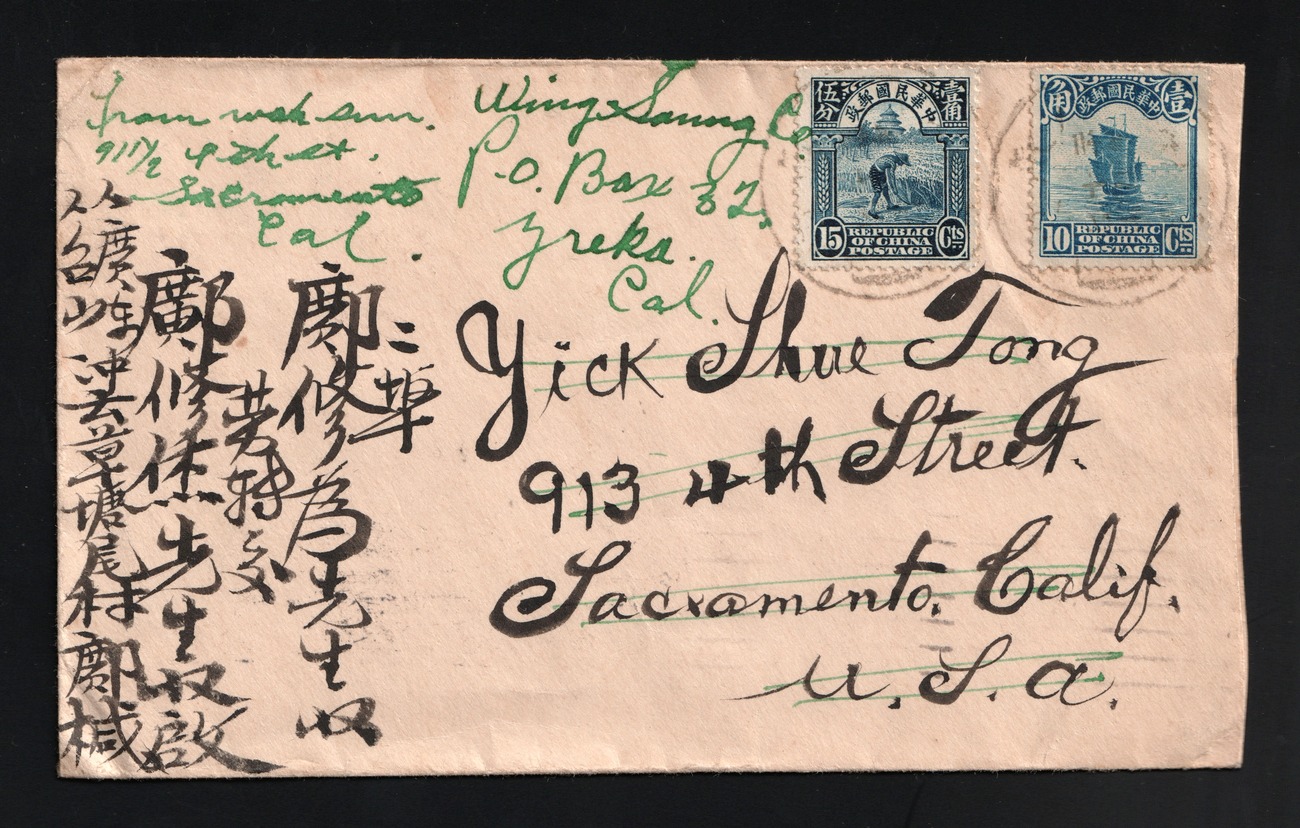 From wah sun.
911½ 4th st.
Sacramento
Cal.
Wing Saung Co
P.O. Box 32.
Yreka.
Cal.
伍分
中華民國郵政
壹角
15
REPUBLIC
OF CHINA
POSTAGE
Cts
角
中華民國郵政
壹
10
REPUBLIC
OF CHINA
POSTAGE
Cts
Yick Shue Tong
913 4th Street.
Sacramento. Calif.
U. S. A.
二埠
鄺修為先生收
勞轉交
鄺修焦先生收啟
廣東
台山
冲云草塘尾村鄺椷